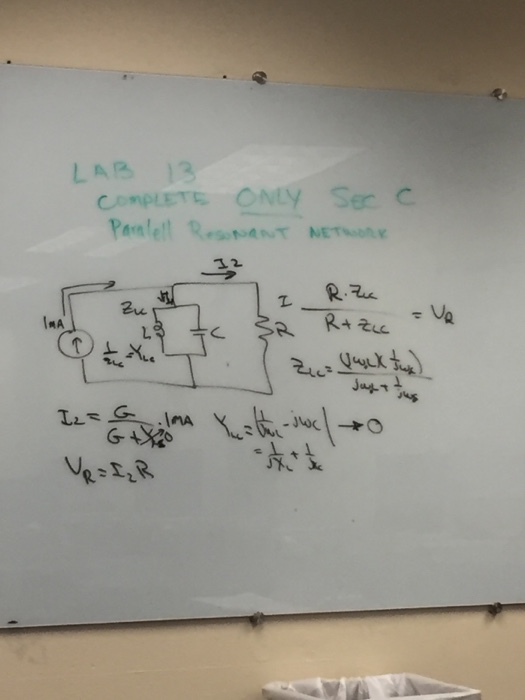 LAB 13
COMPLETE ONLY SEC C
Paralell RESONANT NETWORK
I2
1MA
Z_LC
L
C
R
1/Z_LC = Y_LC
I R·Z_LC / R+Z_LC = V_R
Z_LC = (jωL)(1/jωc) / jωL + 1/jωc
I2 = G / G+Y_LC →0 · 1MA
Y_LC = |1/jωL - jωC| → 0
= 1/jX_L + 1/
V_R = I_2 R